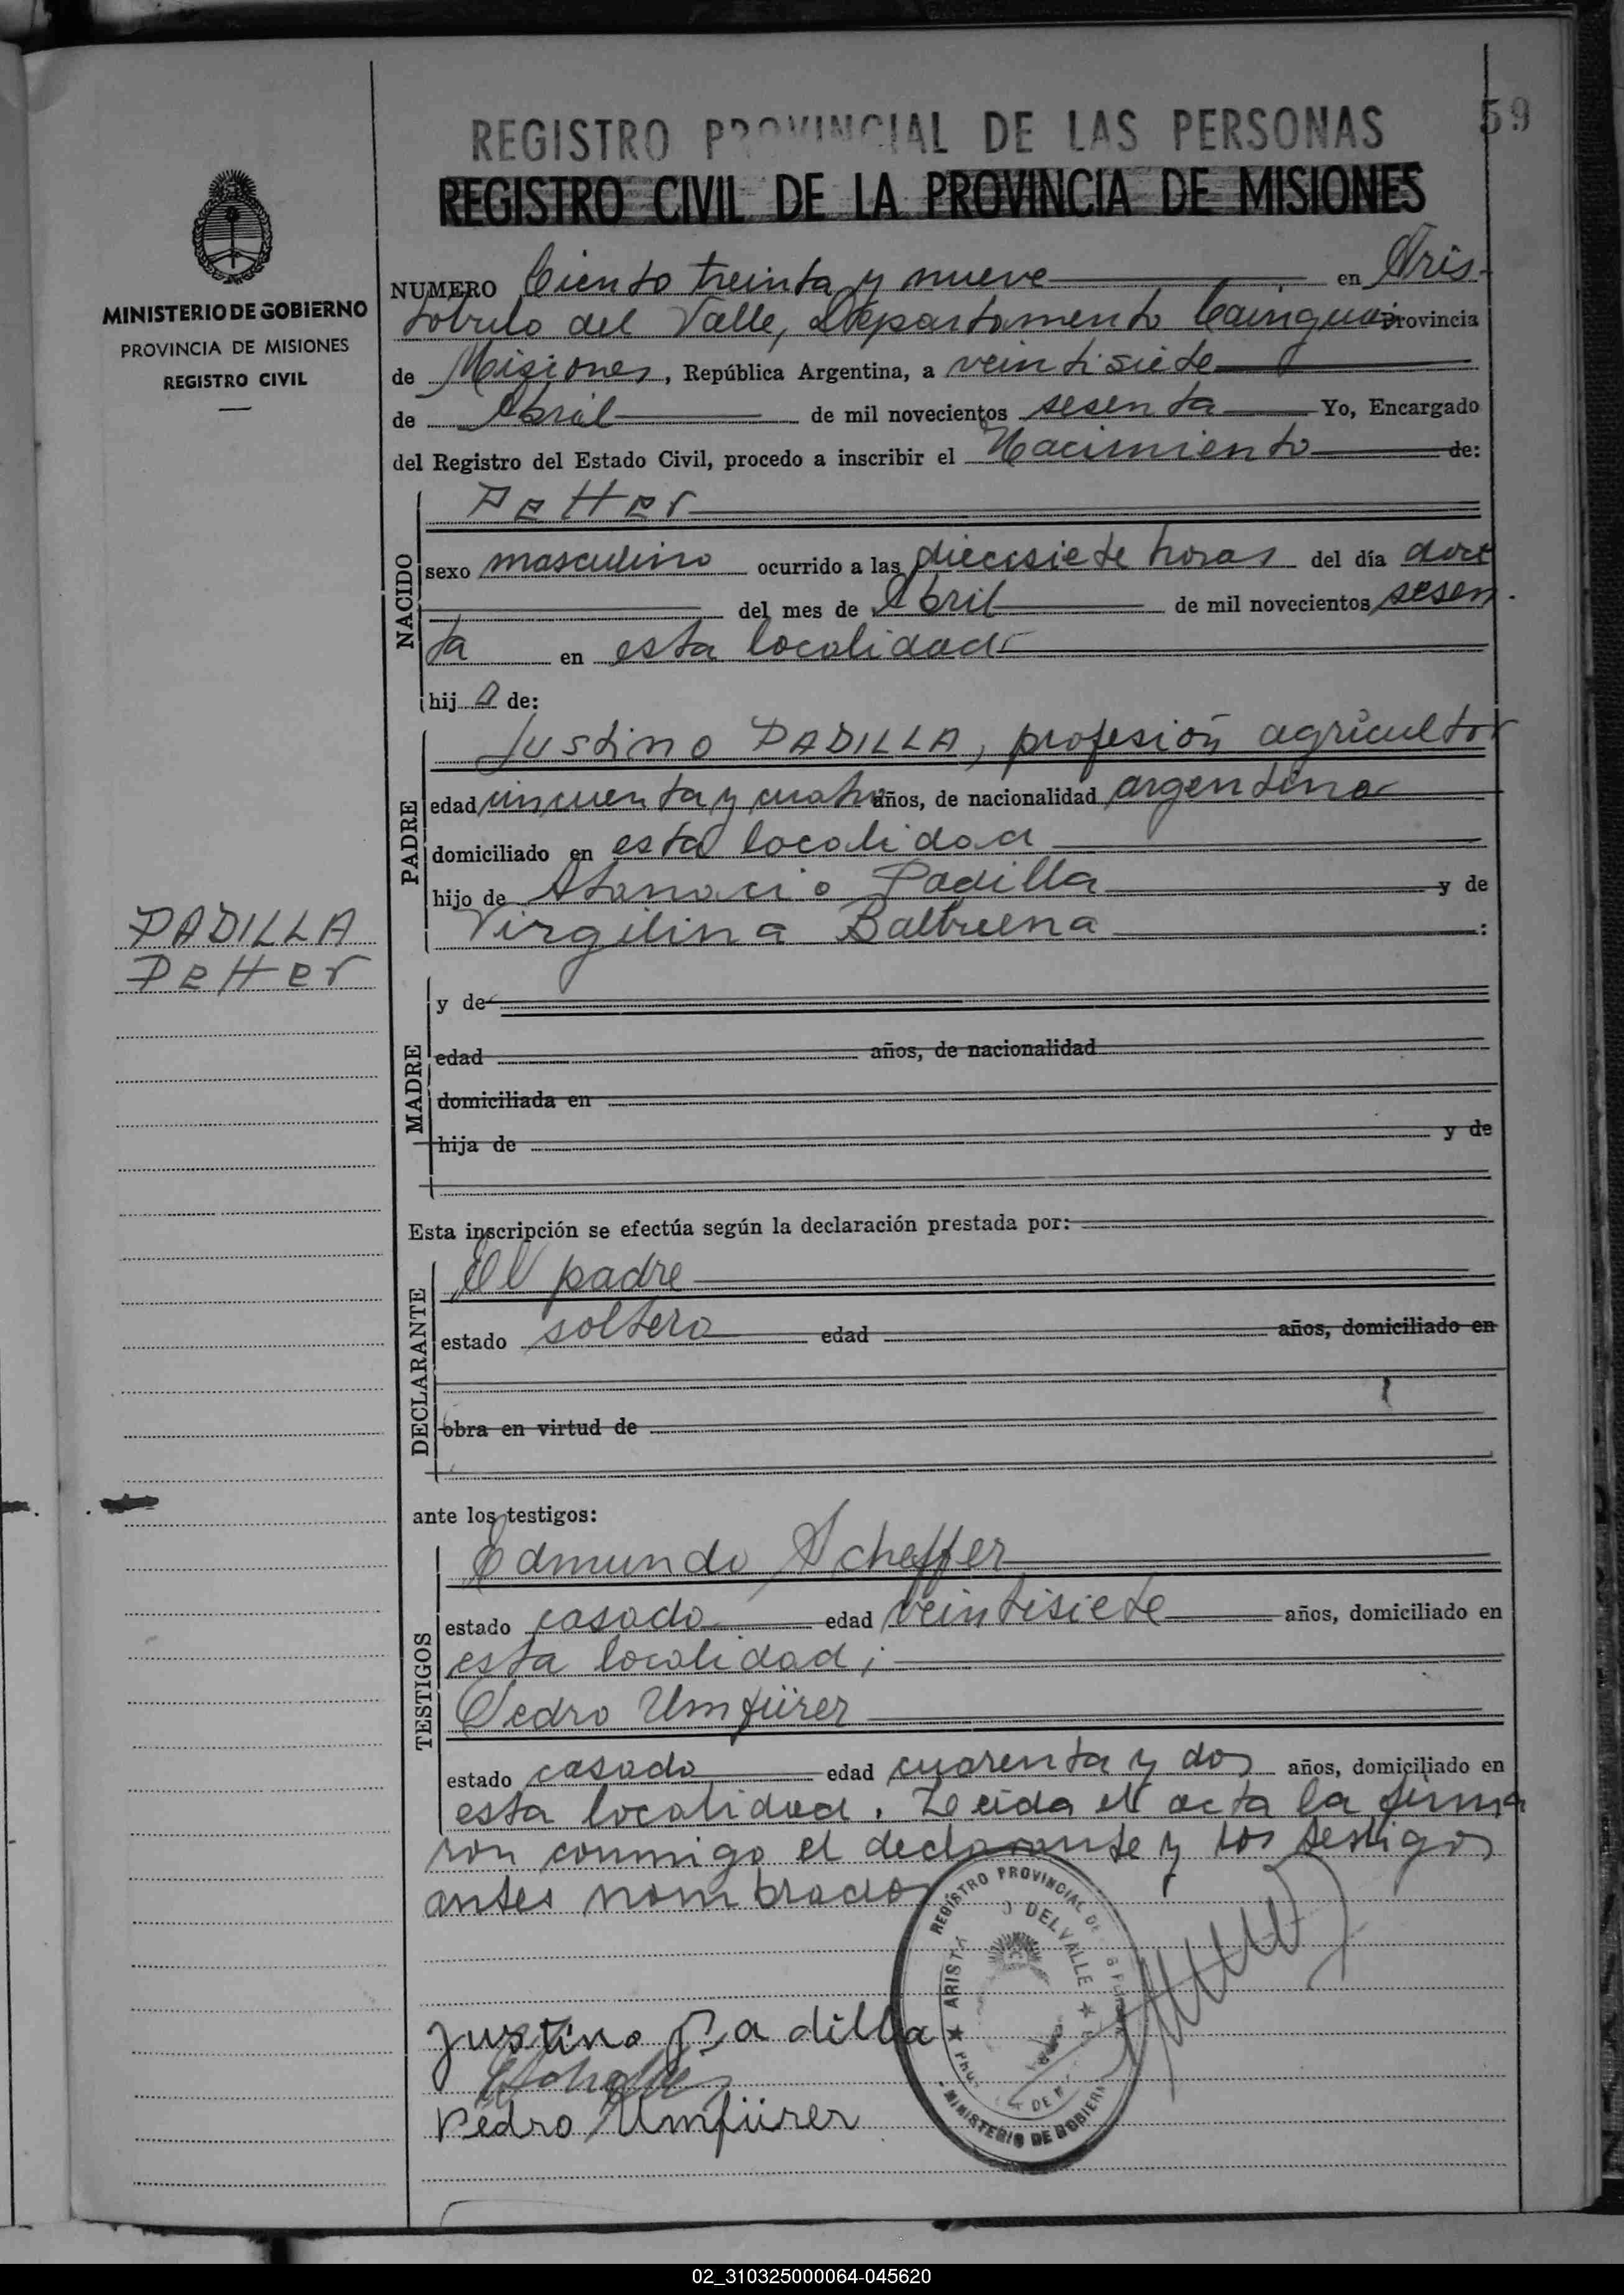 59
REGISTRO PROVINCIAL DE LAS PERSONAS
REGISTRO CIVIL DE LA PROVINCIA DE MISIONES
MINISTERIO DE GOBIERNO
PROVINCIA DE MISIONES
REGISTRO CIVIL
NUMERO Ciento treinta y nueve en Aris-
tobulo del Valle, Departamento Cainguas Provincia
de Misiones, República Argentina, a veintisiete
de Abril de mil novecientos sesenta Yo, Encargado
del Registro del Estado Civil, procedo a inscribir el Nacimiento de:
NACIDO
PeHer
sexo masculino ocurrido a las diecisiete horas del día doce
del mes de Abril de mil novecientos sesen-
ta en esta localidad
hijo de:
PADRE
Justino PADILLA, profesión agricultor
edad cincuenta y cuatro años, de nacionalidad argentino
domiciliado en esta localidad
hijo de Atanacio Padilla y de
Virgilina Balbuena :
PADILLA
PeHer
MADRE
y de
edad años, de nacionalidad
domiciliada en
hija de y de
Esta inscripción se efectúa según la declaración prestada por:
DECLARANTE
El padre
estado soltero edad años, domiciliado en
obra en virtud de
ante los testigos:
TESTIGOS
Edmundo Scheffer
estado casado edad veintisiete años, domiciliado en
esta localidad;
Pedro Umfürer
estado casado edad cuarenta y dos años, domiciliado en
esta localidad. Leida el acta la firma
ron conmigo el declarante y los testigos
antes nombrados
REGISTRO PROVINCIAL DE
ARISTO DEL VALLE
MINISTERIO DE GOBIERN
Justino Padilla
Pedro Umfürer
02_310325000064-045620